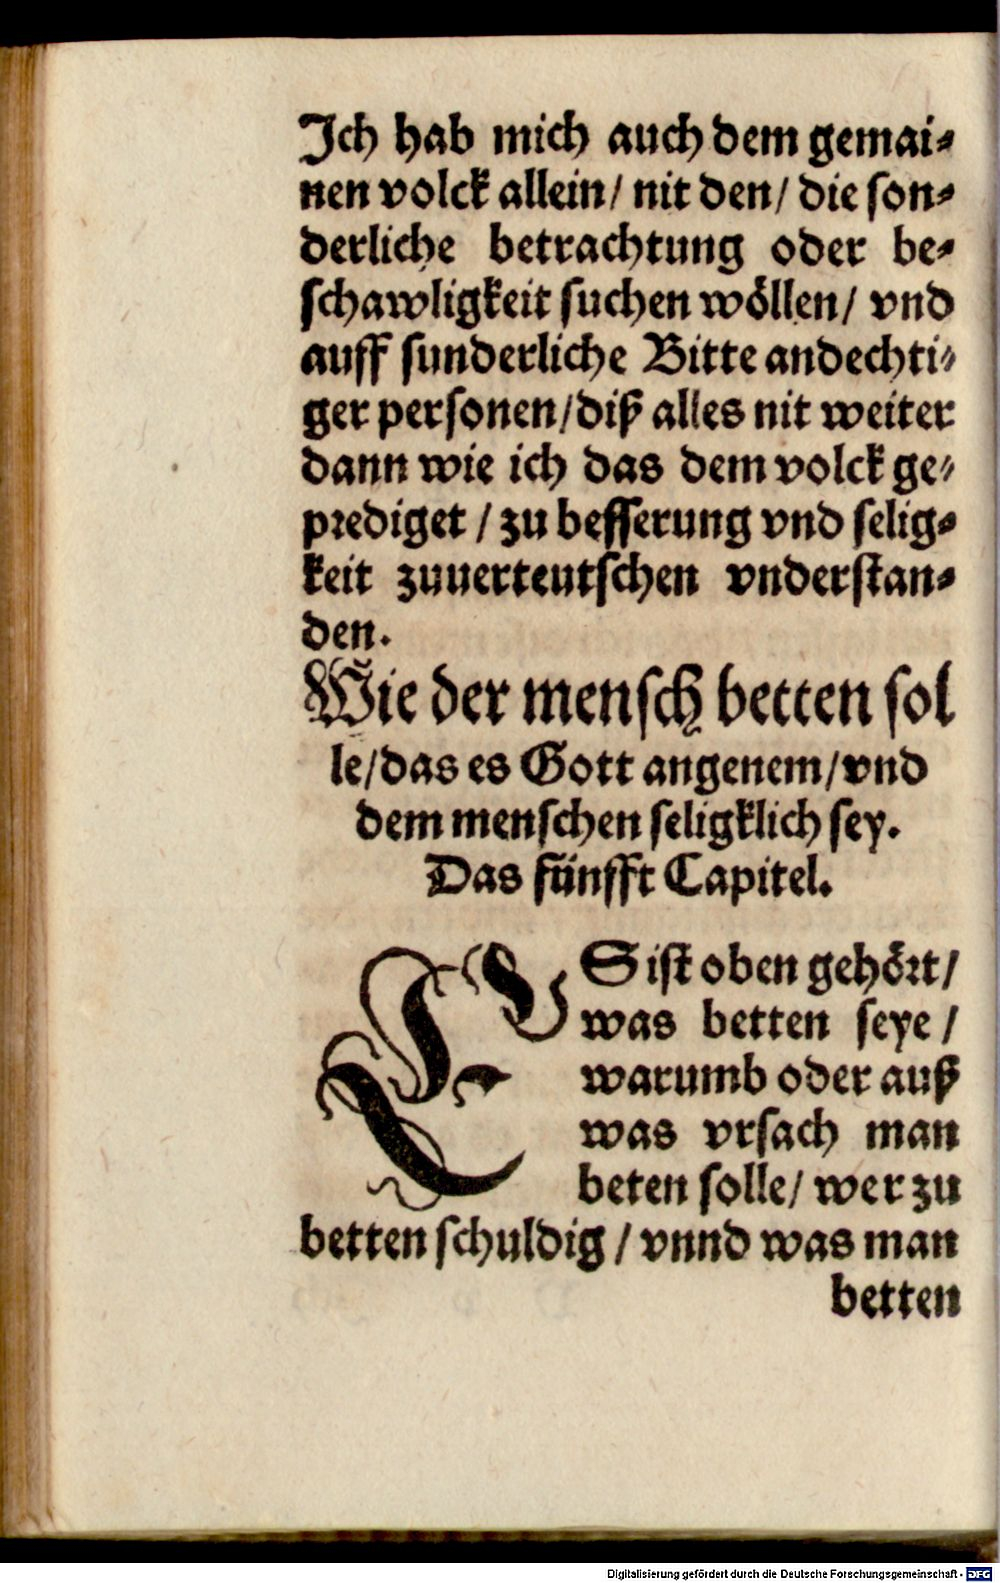 Ich hab mich auch dem gemai-
nen volck allein/ nit den/ die son-
derliche betrachtung oder be-
schawligkeit suchen wöllen/ vnd
auff sunderliche Bitte andechti-
ger personen/ diß alles nit weiter
dann wie ich das dem volck ge-
prediget / zu besserung vnd selig-
keit zuuerteutschen vnderstan-
den.
Wie der mensch betten sol
le/ das es Gott angenem/ vnd
dem menschen seligklich sey.
Das fünfft Capitel.
ES ist oben gehört/
was betten seye /
warumb oder auß
was vrsach man
beten solle/ wer zu
betten schuldig / vnnd was man
betten
Digitalisierung gefördert durch die Deutsche Forschungsgemeinschaft - DFG